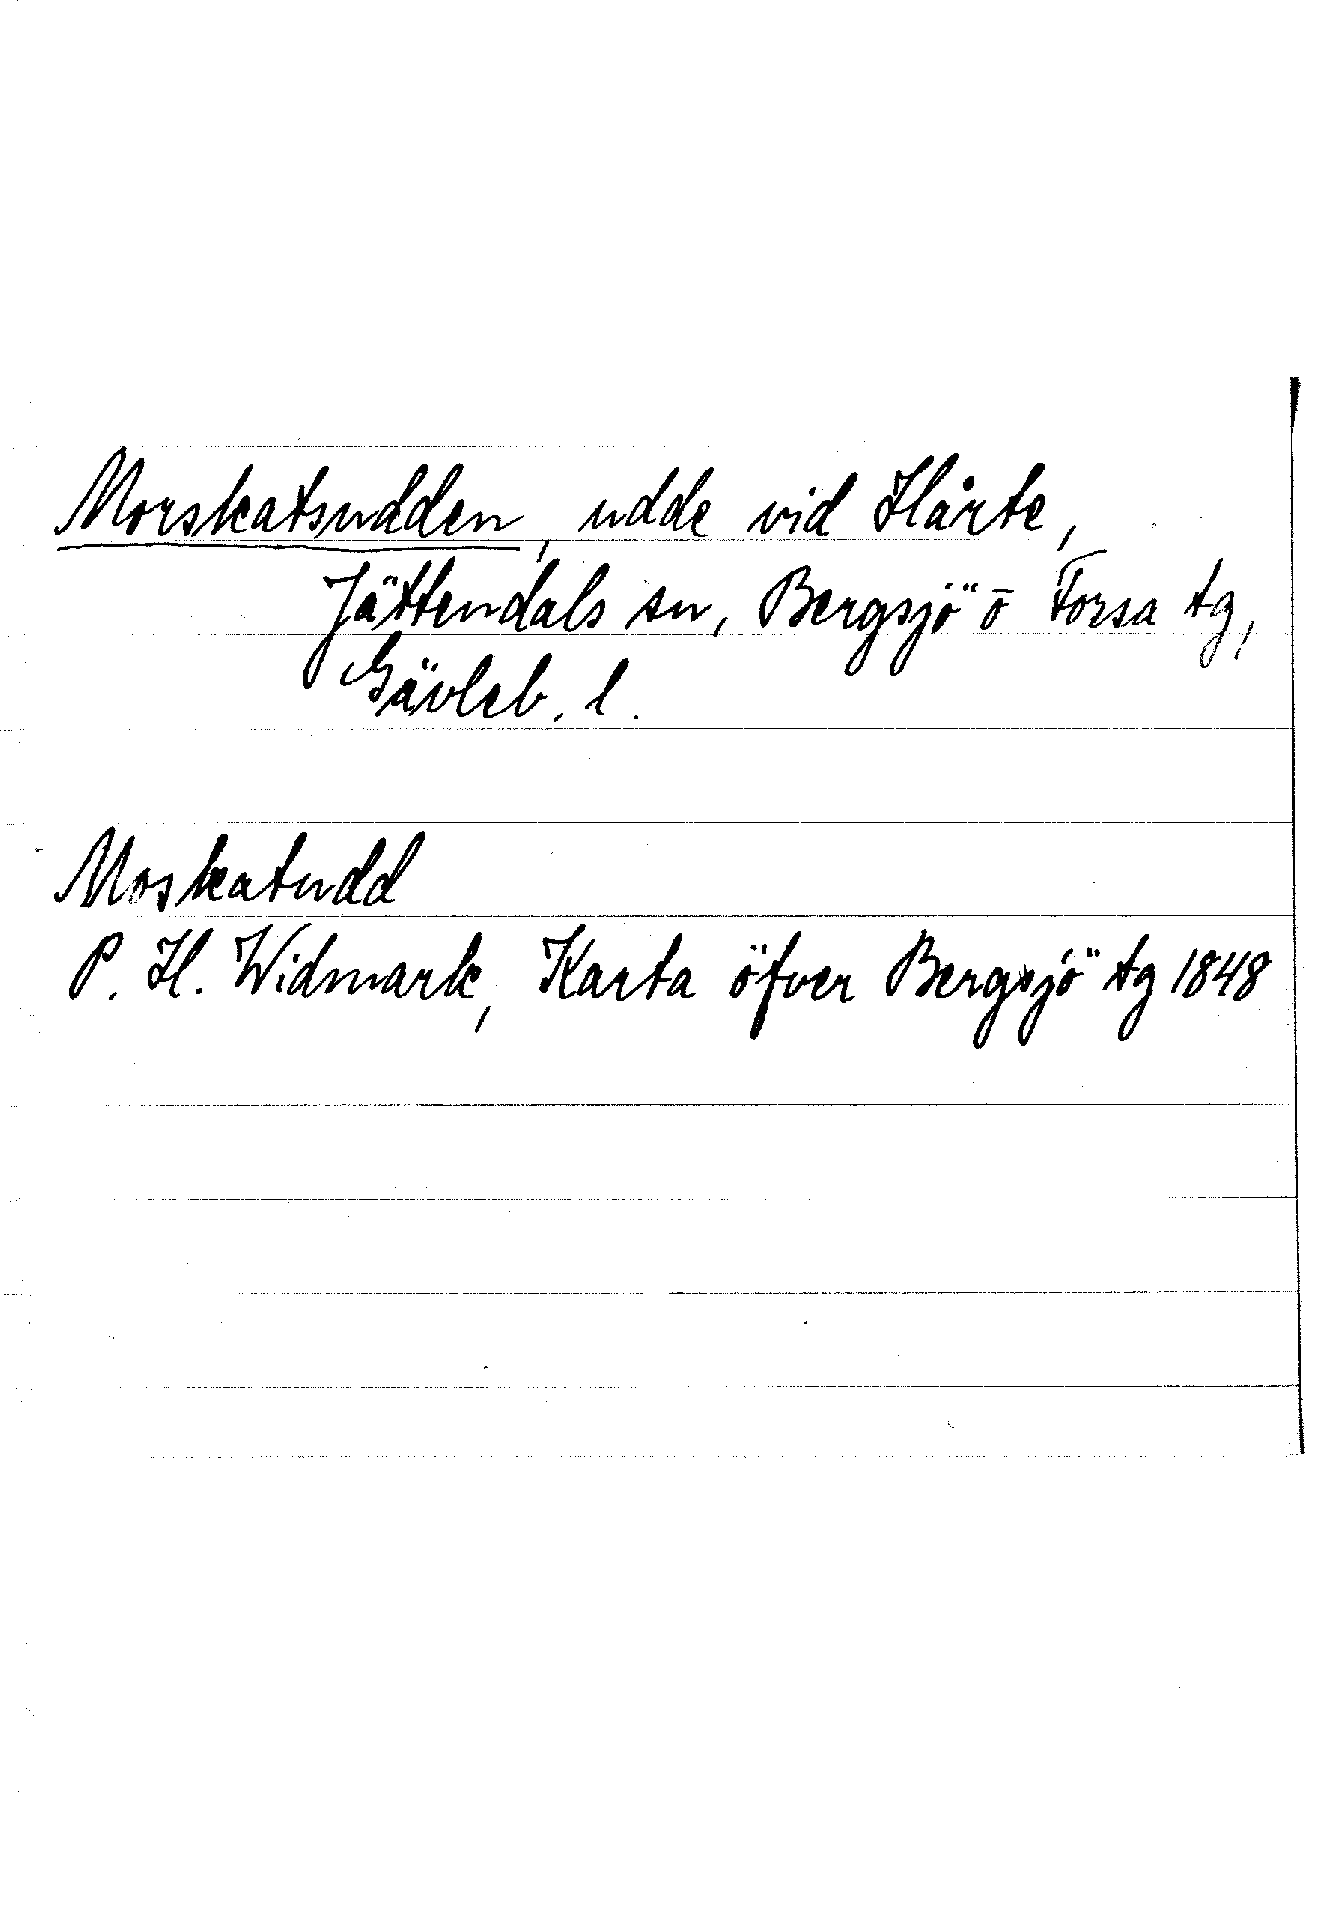 Morskatsudden, udde vid Hårte,
Jättendals sn, Bergsjö o Forsa tg,
Gävleb. l.
Moskatudd
P. H. Widmark, Karta öfver Bergsjö tg 1848